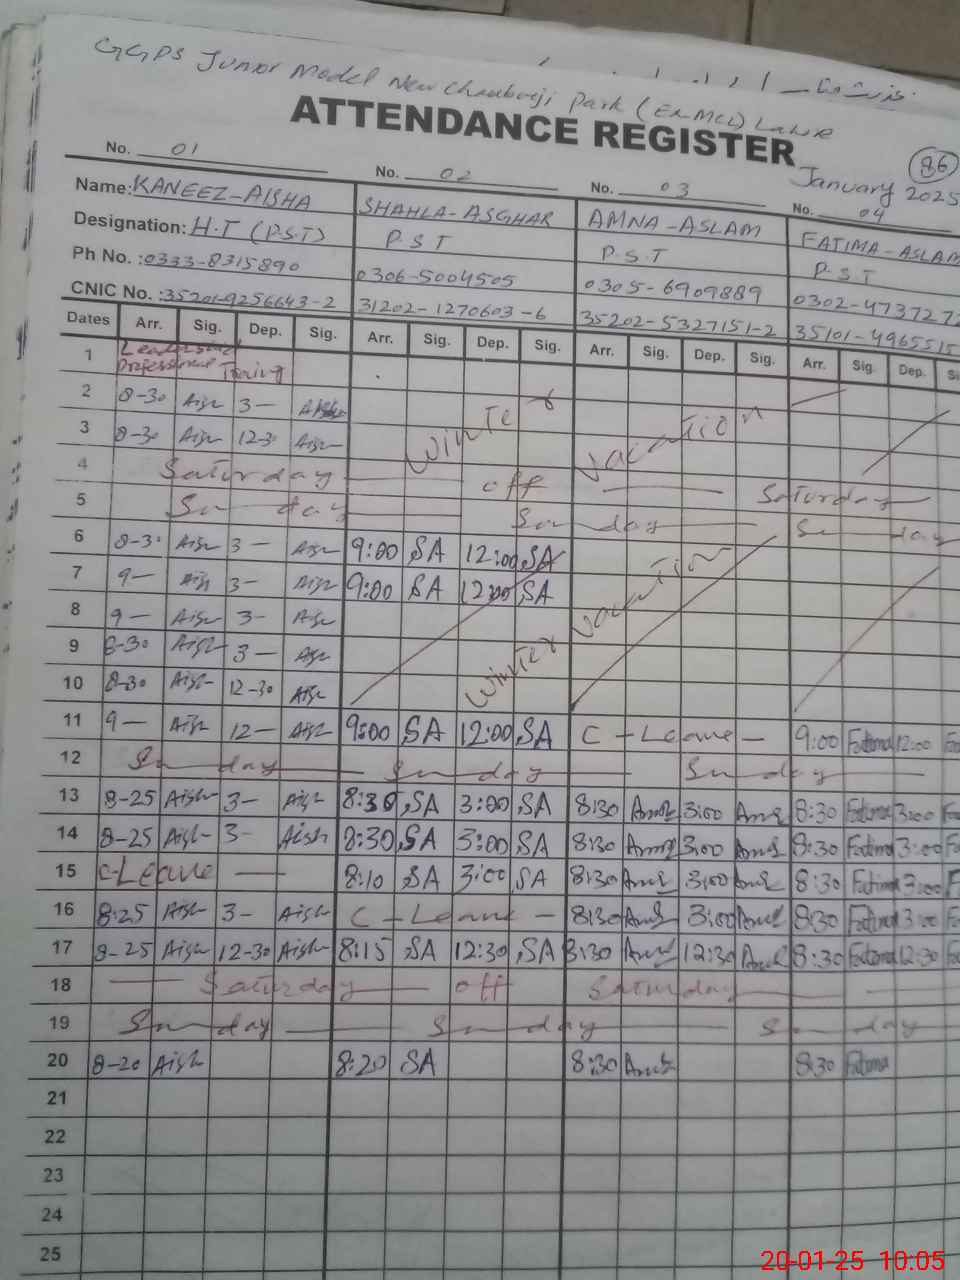 GGPS Junior Model New Chauburji Park (Ex-MCL) Lahore
ATTENDANCE REGISTER
86
January 2025
No. 01 No. 02 No. 03 No. 04
Name: KANEEZ-AISHA SHAHLA-ASGHAR AMNA-ASLAM FATIMA-ASLAM
Designation: H.T (P.S.T) P.S.T P.S.T P.S.T
Ph No. : 0333-8315890 0306-5004505 0305-6909889 0302-473727
CNIC No. : 35201-9256643-2 31202-1270603-6 35202-5327151-2 35101-4965515
Dates Arr. Sig. Dep. Sig. Arr. Sig. Dep. Sig. Arr. Sig. Dep. Sig. Arr. Sig. Dep. Si
1 Professional
2 8-30 Aish 3- Aish Winter Vacation
3 8-30 Aish 12-30 Aish
4 Saturday off Saturday
5 Sunday Sunday Sunday
6 8-30 Aish 3- Aish 9:00 SA 12:00 SA
7 9- Aish 3- Aish 9:00 SA 12:00 SA Winter Vacation
8 9- Aish 3- Aish
9 8-30 Aish 3- Aish
10 8-30 Aish 12-30 Aish
11 9- Aish 12- Aish 9:00 SA 12:00 SA C-Leave - 9:00 Fatima 12:00 Fa
12 Sunday Sunday Sunday
13 8-25 Aish 3- Aish 8:30 SA 3:00 SA 8:30 Amna 3:00 Amna 8:30 Fatima 3:00 Fa
14 8-25 Aish 3- Aish 8:30 SA 3:00 SA 8:30 Amna 3:00 Amna 8:30 Fatima 3:00 Fa
15 C-Leave - 8:10 SA 3:00 SA 8:30 Amna 3:00 Amna 8:30 Fatima 3:00 F
16 8:25 Aish 3- Aish C-Leave - 8:30 Amna 3:00 Amna 8:30 Fatima 3:00 Fa
17 8-25 Aish 12-30 Aish 8:15 SA 12:30 SA 8:30 Amna 12:30 Amna 8:30 Fatima 12:30 Fa
18 Saturday off Saturday
19 Sunday Sunday Sunday
20 8-20 Aish 8:20 SA 8:30 Amna 8:30 Fatima
21
22
23
24
25
20-01-25 10:05